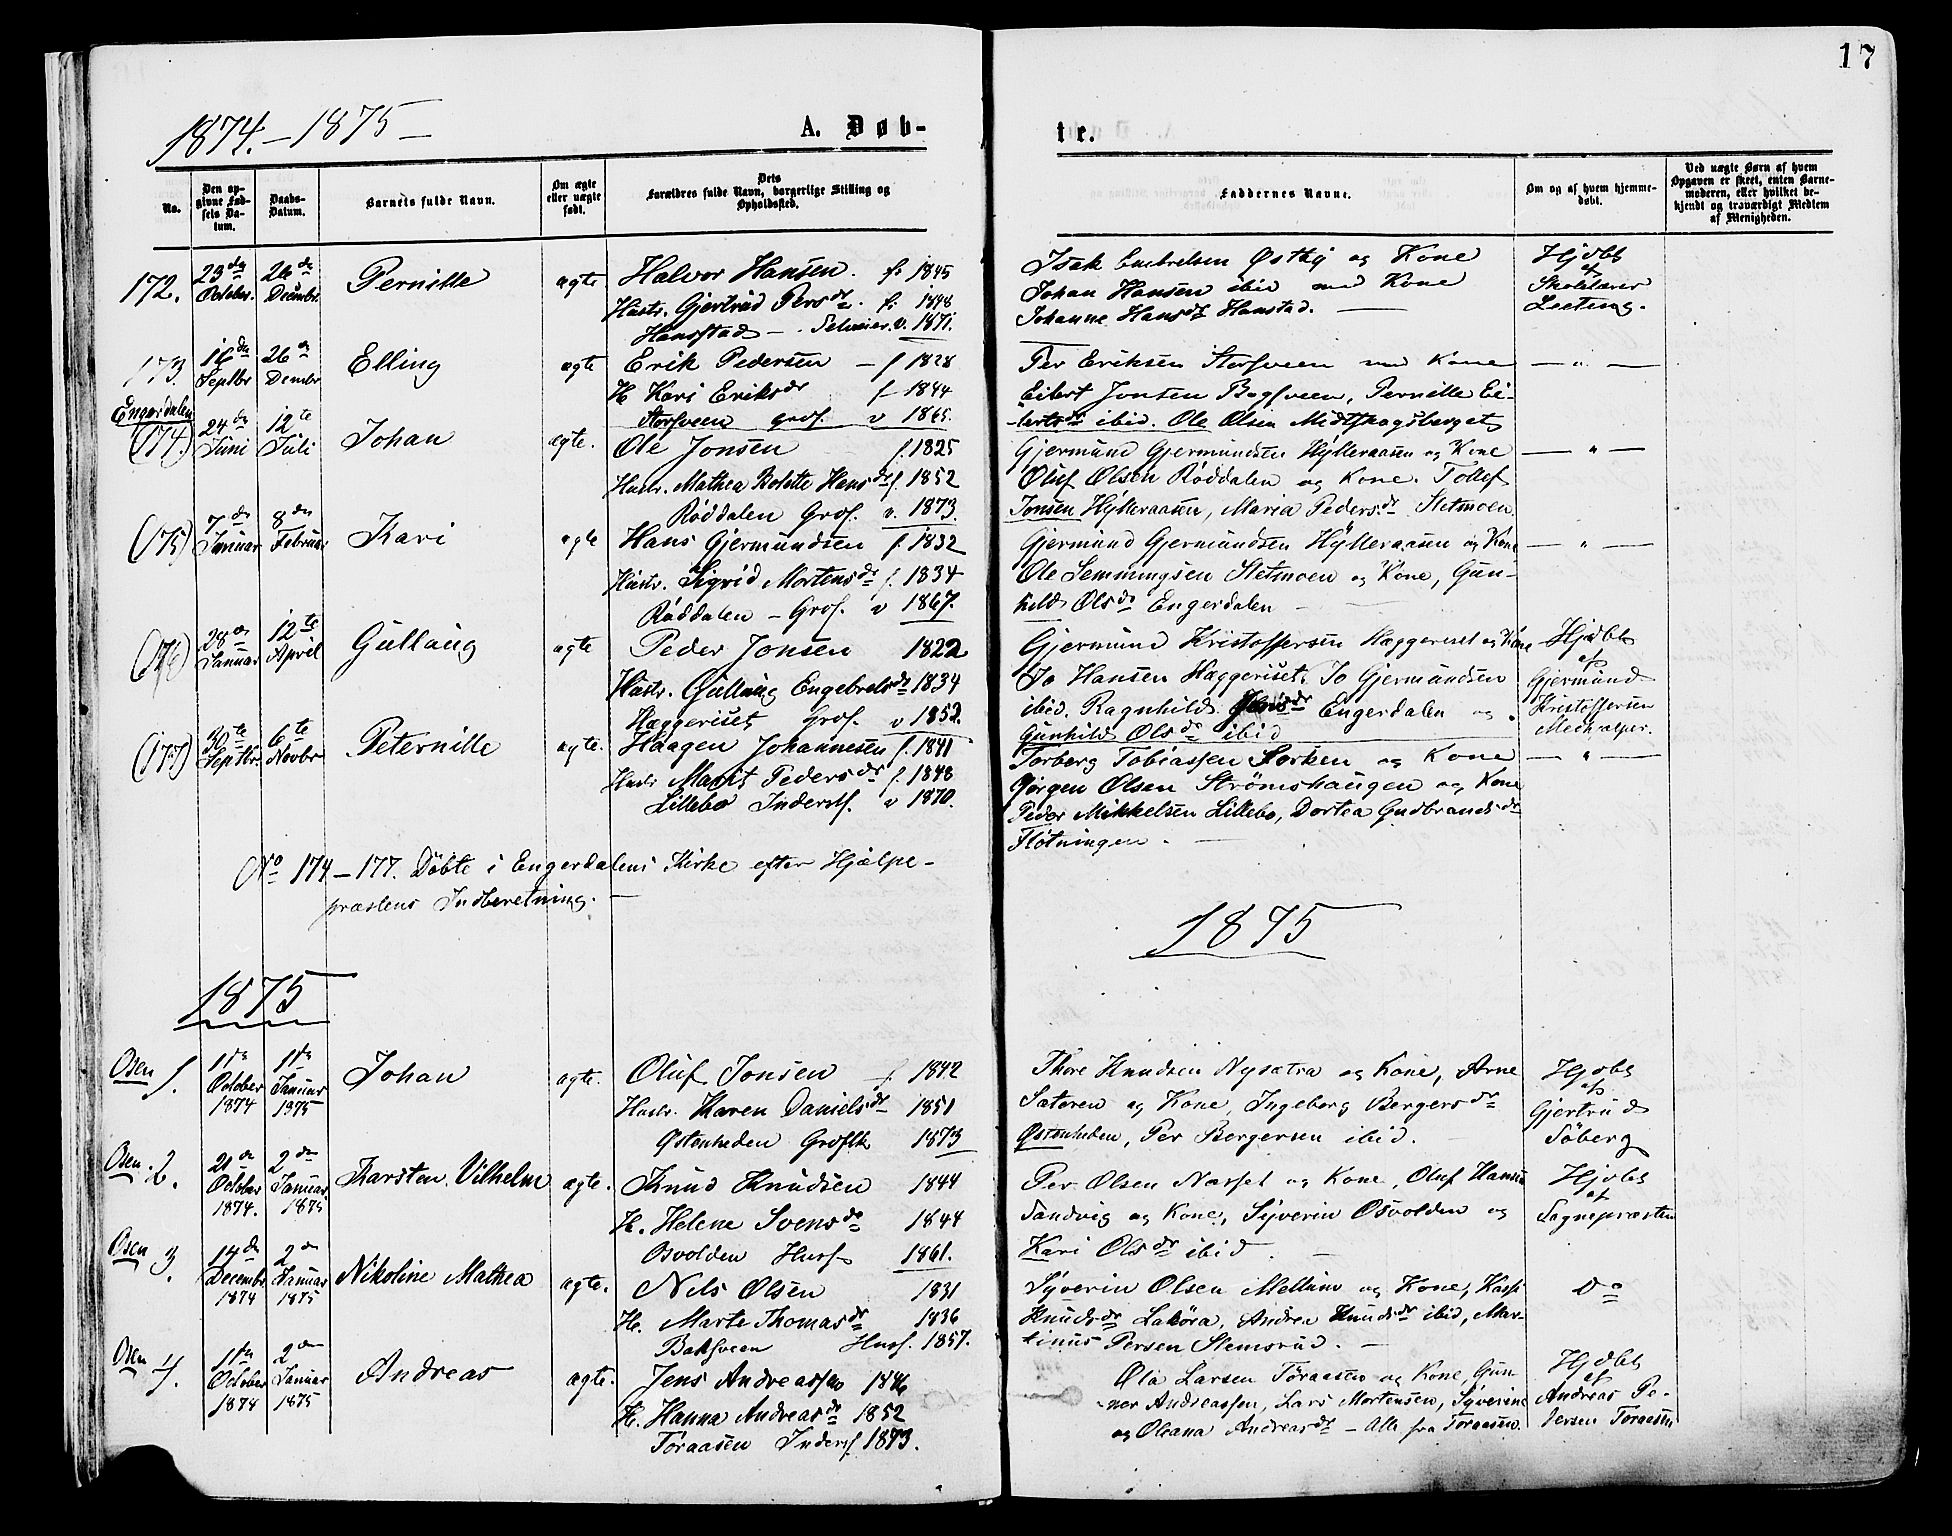 17
1874. – 1875 –
A. Døb-
te.
No.
Den op-
givne Fød-
sels Da-
tum.
Daabs-
Datum.
Barnets fulde Navn.
Om ægte
eller uægte
født.
Dets
Forældres fulde Navn, borgerlige Stilling og
Opholdssted.
Faddernes Navne.
Om og af hvem hjemme-
døbt.
Ved uægte Børn af hvem
Opgaven er skeet, enten Barne-
moderen, eller hvilket be-
kjendt og troværdigt Medlem
af Menigheden.
172.
23de
October.
26de
Decembr
Pernille
ægte
Halvor Hansen. f. 1845
Hustr. Gjertrud Persdr. f. 1848
Hanstad – v. 1871.
Isak Embretsen Østby og Kone
Johan Hansen ibid med Kone
Johanne Hansdr Hanstad. —
Hjdbt
af
Skolelærer
173.
16de
Septbr
26de
Elling
ægte
Erik Pedersen – f 1828
H. Kari Eriksdr f 1844
Storsveen v 1865.
Per Eriksen Storsveen med Kone
Eilert Jonsen Bagsveen, Pernille Ei-
lertsdr ibid. Ole Olsen Midtskogsberget
— " —
Engerdalen
(174.)
24de
Juni
12te
Juli
Johan
ægte.
Ole Jonsen f. 1825
Hustr. Mathea Hansdr f. 1852
Røddalen Grdf. v. 1873.
Gjermund Gjermundsen Hylleraasen og Kone
Oluf Olsen Røddalen og Kone. Tollef
Jonsen Hylleraasen, Maria Pedersdr Sletmoen.
— " —
(175)
7de
Januar
8de
Februar
Kari
ægte
Hans Gjermundsen f. 1832
Hustr. Sigrid Mortensdr f. 1834
Røddalen – Grdf. v 1867.
Gjermund Gjermundsen Hylleraasen og Kone
Ole Semmingsen Sletmoen og Kone, Gun-
hild Olsdr Engerdalen –
— " —
(176)
28de
Januar
12te
April
Gullaug
ægte
Peder Jonsen 1822
Hustr. Gullaug Engebretsdr 1834
Hæggeriset Grdf. v 1852.
Gjermund Kristoffersen Hæggeriset og Kone
Jo Hansen Hæggeriset. Jo Gjermundsen
ibid. Ragnhild Jonsdr Engerdalen og
Gunhild Olsdr ibid
Hjdbt
af
Gjermund
Kristoffersen
(177)
30te
Septbr.
6te
Novbr
Peternille
ægte.
Haagen Johannesen f. 1841
Hustr Marit Pedersdr f. 1848
Lillebo Inderst. v 1870.
Torberg Tobiassen Sorken og Kone
Jørgen Olsen Strömshaugen og Kone
Peder Mikkelsen Lillebo, Dortea Gudbrandsdr
Fløtningen. –
— " —
No 174 – 177. Döbte i Engerdalens Kirke efter Hjælpe-
præstens Indberetning. —
1875
1875
Osen 1.
11te
October
1874
1ste
Januar
1875
Johan
ægte.
Oluf Jonsen f 1842
Hustr. Karen Danielsdr 1851
Østenheden 1873
Thore Knudsen Nysætra og Kone, Arne
Sæteren og Kone, Ingeborg Bergersdr
Østenheden, Per Bergersen ibid.
Hjdbt
af
Gjertrud
Söberg
Osen. 2.
21de
October
1874.
2den
Januar
1875
Karsten Vilhelm
ægte.
Knud Knudsen 1844
H. Helene Svensdr 1844
Osvolden Husf 1861.
Per Olsen Næsset og Kone, Oluf Hansen
Sandvig og Kone, Syverin Osvolden og
Kari Olsdr ibid. —
Hjdbt
af
Sognepræsten
Osen 3.
14de
Decembr
1874
2den
Januar
1875
Nikoline Mathea
ægte.
Nils Olsen 1831
H. Marte Thomasdr 1836
Baksveen Husf. 1857.
Syverin Olsen Mellum og Kone,
Knudsdr Andrea Knudsdr ibid, Mar-
tinus Persen Stemsrud. —
Do
Osen 4.
11te
October
1874
2den
Januar
1875
Andreas
ægte.
Jens Andreassen 1846
H. Hanna Andreasdr 1852
Töraasen Inderst. 1873.
Ola Larsen Töraasen og Kone, Gun-
ner Andreassen, Lars Mortensen, Syverine
og Oleana Andreasdr – Alle fra Töraasen.
Hjdbt
af
Andreas Pe-
dersen Töraasen